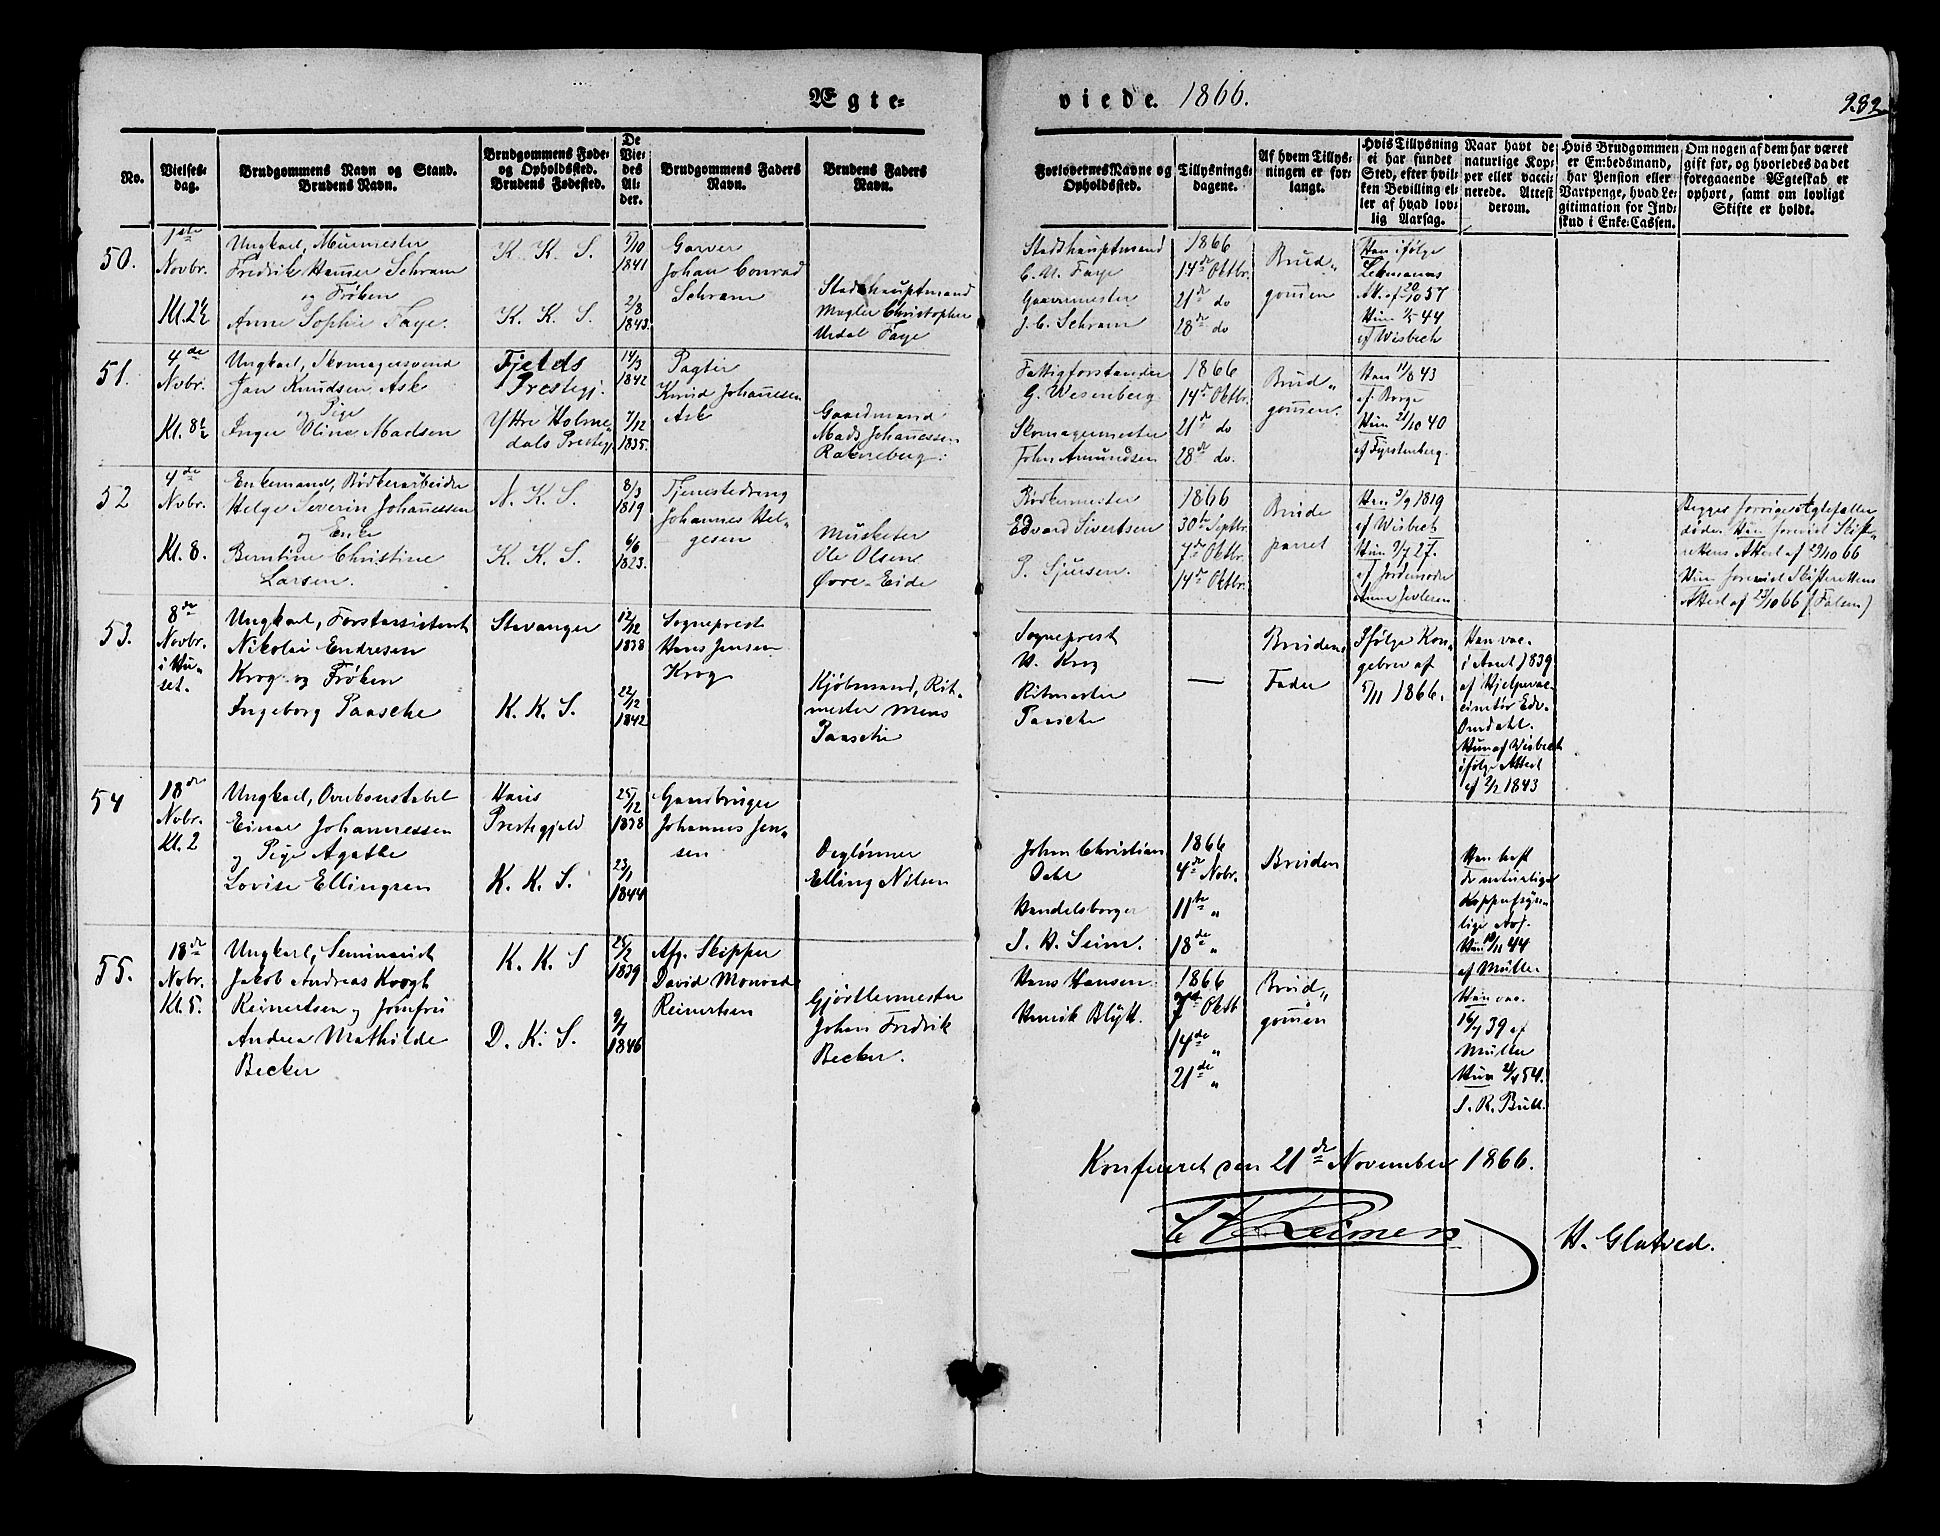 Ægte-
viede. 1866.
282
No.
Vielses-
dag.
Brudgommens Navn og Stand.
Brudens Navn.
Brudgommens Føde-
og Opholdssted.
Brudens Fødested.
De
Vie-
des
Al-
der.
Brudgommens Faders
Navn.
Brudens Faders
Navn.
Forlovernes Navne og
Opholdssted.
Tillysnings-
dagene.
Af hvem Tillys-
ningen er for-
langt.
Hvis Tillysning
ei har fundet
Sted, efter hvil-
ken Bevilling el-
ler af hvad lov-
lig Aarsag.
Naar havt de
naturlige Kop-
per eller vacci-
nerede. Attest
derom.
Hvis Brudgommen
er Embedsmand,
har Pension eller
Vartpenge, hvad Le-
gitimation for Ind-
skud i Enke-Cassen.
Om nogen af dem har været
gift før, og hvorledes da det
foregaaende Ægteskab er
ophørt, samt om lovligt
Skifte er holdt.
50.
1ste
Novbr.
Kl. 2½
Ungkarl, Murmester
Fredrik Hauser Schram
og Frøken
Anne Sophie Faye.
K. K. S.
K. K. S.
5/10
1841
2/8
1843.
Garver
Johan Conrad
Schram
Stadshauptmand
Mugler Christopher
Urdal Faye
Stadshauptmand
C. U. Faye
Garvermester
J. C. Schram
1866
14de Oktbr.
21de do
28de do
Brud„
gommen
Han ifølge
Lehmanns
Att. af 20/10 57
Hun 1/5 44
af Wisbech
51.
4de
Novbr.
Kl. 8½
Ungkarl, Skomagersvend
Jan Knudsen Ask
og Pige
Inger Oline Madsen
Fjelds
Prestegj.
Ytre Holme-
dals Prestegj
14/3
1842
7/12
1835.
Pagter
Knud Johannesen
Ask
Gaardmand
Mads Johannessen
Rakneberg.
Fattigforstander
G. Wesenberg
Skomagermester
John Amundsen
1866
14de Oktbr.
21de do
28de do.
Brud„
gommen.
Han 11/8 43
af Borge
Hun 21/10 40
af Fyrstenberg.
52
4de
Novbr.
Kl. 8.
Enkemand, Bødkerarbeider
Helge Severin Johannessen
og Enke
Berntine Christine
Larsen.
N. K. S.
K. K. S.
8/3
1819
6/6
1823.
Tjenestedreng
Johannes Hel-
gesen
Musketer
Ole Olsen
Øvre-Eide
Bødkermester
Edvard Sivertsen
P. Sjursen.
1866
30te Septbr.
7de Oktbr.
14de Oktbr.
Brude
parret
Han 3/9 1819
af Wisbech
Hun 9/7 27.
af Jordemoder
Anna Jevleren
Begges forrige Ægtefæller
døde. Han foreviist Skifte-
rettens Attest af 29/10 66
Hun foreviist Skifterettens
Attest af 23/10 66 (Falsen)
53.
8de
Novbr.
i Hu-
set.
Ungkarl, Forstassistent
Nikolai Endresen
Krog og Frøken
Ingeborg Paasche
Stavanger
K. K. S.
12/12
1838
22/12
1842
Sogneprest
Hans Jensen
Krog
Kjøbmand, Rit-
mester Mons
Paasche
Sogneprest
H. Krog
Ritmester
Paasche
—
Brudens
Fader
Ifølge Kon-
gebrev af
5/11 1866.
Han vac.
i Aaret 1839
af Hjelpevac-
cinatør Edv.
Omdahl.
Hun af Wisbech
ifølge Attest
af 2/2 1843
54
18de
Novbr.
Kl. 2
Ungkarl, Overkonstabel
Einar Johannessen
og Pige Agathe
Lovise Ellingsen
Haus
Prestegjeld
K. K. S.
25/12
1838
23/1
1844
Gaardbruger
Johannes Jen-
sen
Daglønner
Elling Nilsen
Johan Christian
Dahl
Handelsborger
J. H. Seim.
1866
4de Novbr.
11te „
18de „
Bruden
Han haft
de naturlige
Kopper syn-
lige Ar.
Hun 19/11 44
af Müller
55.
18de
Novbr.
Kl. 5.
Ungkarl, Seminarist
Jakob Andreas Krogh
Reinertsen og Jomfru
Andrea Mathilde
Becker
K. K. S
D. K. S.
25/2
1839
9/7
1846
Afg. Skipper
David Monrad
Reinertsen
Gjørtlermester
Johan Fredrik
Becker.
Hans Hansen
Henrik Blytt.
1866
7de Oktb
14de „
21de „
Brud„
gommen
Han vac.
16/7 39 af
Müller
Hun 21/4 54.
J. R. Bull.
Konfereret den 21de November 1866.
Reimers
H. Glatved.